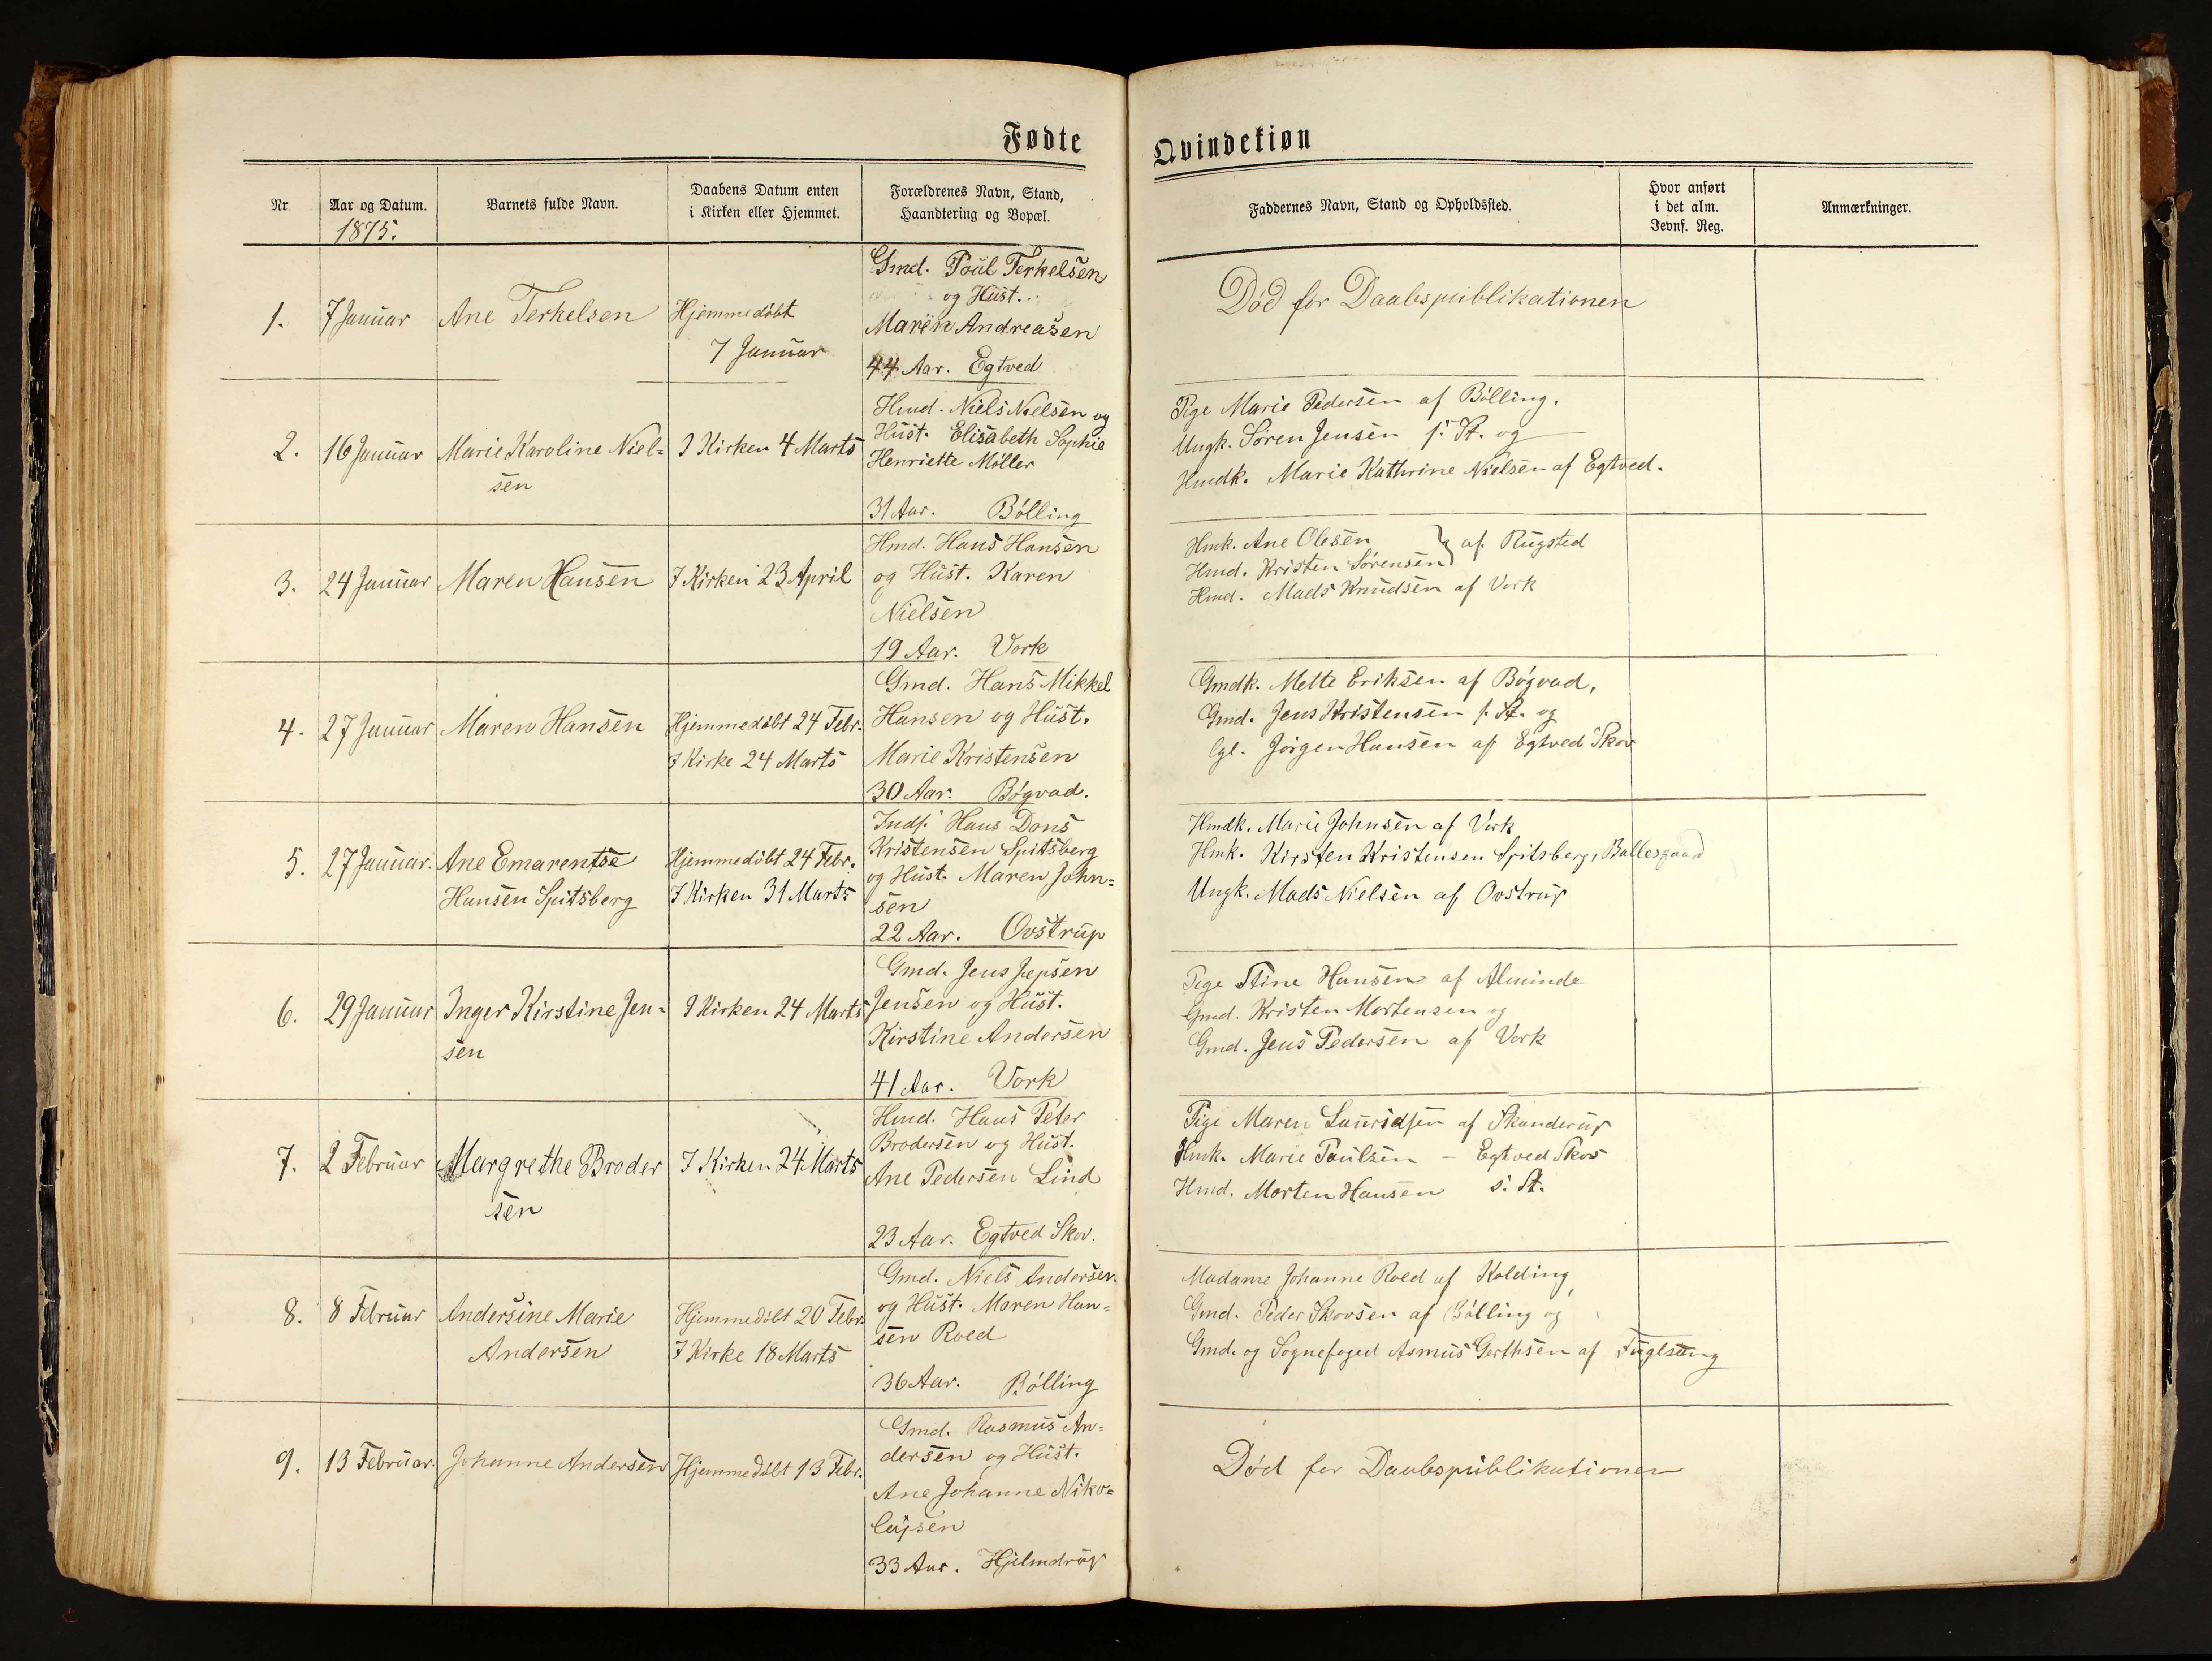 Fødte
Qvindekiøn
Nr
Aar og Datum.
1875.
Barnets fulde Navn.
Daabens Datum enten
i Kirken eller Hjemmet.
Forældrenes Navn, Stand,
Haandtering og Bopæl.
Faddernes Navn, Stand og Opholdssted.
Hvor anført
i det alm.
Jevnf. Reg.
Anmærkninger.
1.
7 Januar
Ane Terkelsen
Hjemmedøbt
7 Januar
Gmd. Poul Terkelsen
og Hust.
Maren Andreasen
44 Aar. Egtved
Død før Daabspublikationen
2.
16 Januar
Marie Karoline Niel=
sen
I Kirken 4 Marts
Hmd. Niels Nielsen og
Hust. Elisabeth Sophie
Henriette Møller
31 Aar. Bølling
Pige Marie Pedersen af Bølling.
Ungk. Søren Jensen s. St. og
Hmdk. Marie Kathrine Nielsen af Egtved.
3.
24 Januar
Maren Hansen
I Kirken 23 April
Hmd. Hans Hansen
og Hust. Karen
Nielsen
19 Aar. Vork
Hmk. Ane Olesen
Hmd. Kristen Sørensen } af Rugsted
Hmd. Mads Knudsen af Vork
4.
27 Januar
Maren Hansen
Hjemmedøbt 24 Febr.
I Kirke 24 Marts
Gmd. Hans Mikkel
Hansen og Hust.
Marie Kristensen
30 Aar. Bøgvad.
Gmdk. Mette Eriksen af Bøgvad,
Gmd. Jens Kristensen s. St. og
Jørgen Hansen af Egtved Skov
5.
27 Januar.
Ane Emarentse
Hansen Spitsberg
Hjemmedøbt 24 Febr.
I Kirken 31 Marts
Inds. Hans Dons
Kristensen Spitsberg
og Hust. Maren John=
sen
22 Aar. Ovstrup
Hmdk. Marie Johnsen af Vork
Hmk. Kirsten Kristensen Spitsberg, Ballesgaard
Ungk. Mads Nielsen af Ovstrup
6.
29 Januar
Inger Kirstine Jen=
sen
I Kirken 24 Marts
Gmd. Jens Jepsen
Jensen og Hust.
Kirstine Andersen
41 Aar. Vork
Pige Stine Hansen af Alminde
Gmd. Kristen Mortensen og
Gmd. Jens Pedersen af Vork
7.
2 Februar
Margrethe Broder
sen
I Kirken 24 Marts
Hmd. Hans Peter
Brodersen og Hust.
Ane Pedersen Lind
23 Aar. Egtved Skov.
Pige Maren Lauridsen af Skanderup
Hmk. Marie Poulsen – Egtved Skov
Hmd. Morten Hansen s. St.
8.
8 Februar
Andersine Marie
Andersen
Hjemmedøbt 20 Febr.
I Kirke 18 Marts
Gmd. Niels Andersen
og Hust. Maren Han=
sen Roed
36 Aar. Bølling
Madame Johanne Roed af Kolding,
Gmd. Peder Skovsen af Bølling og
Gmd. og Sognefoged Asmus Gerthsen af Fuglsang
9.
13 Februar.
Johanne Andersen
Hjemmedøbt 13 Febr.
Gmd. Rasmus An=
dersen og Hust.
Ane Johanne Niko=
lajsen
33 Aar. Hjelmdrup
Død før Daabspublikationen